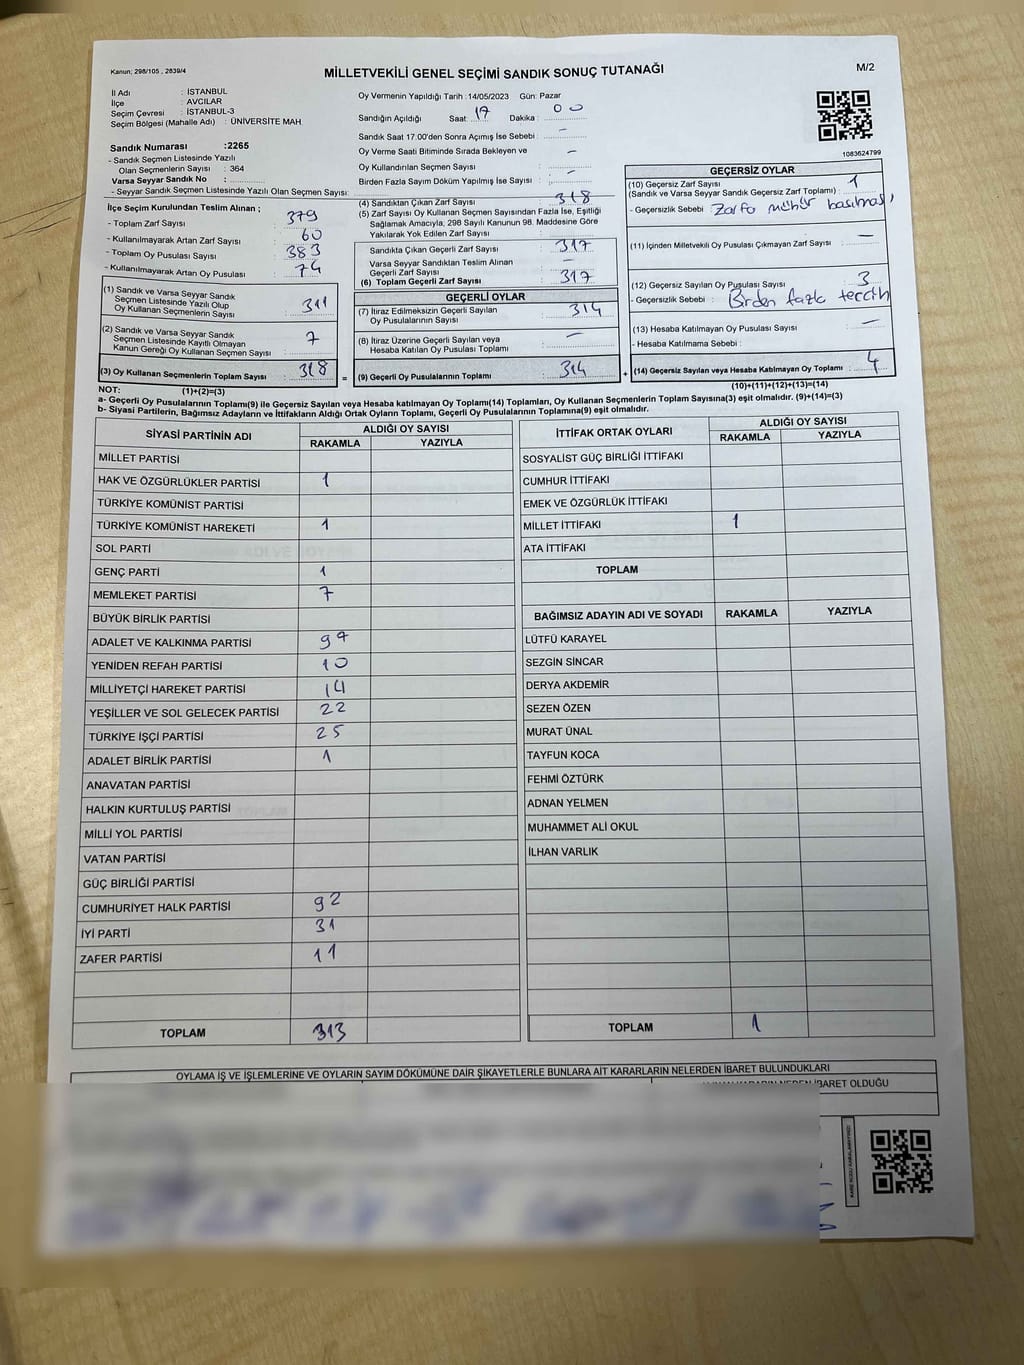 Kanun; 298/105 , 2839/4
MİLLETVEKİLİ GENEL SEÇİMİ SANDIK SONUÇ TUTANAĞI
M/2
İl Adı : İSTANBUL
İlçe : AVCILAR
Seçim Çevresi : İSTANBUL-3
Seçim Bölgesi (Mahalle Adı) : ÜNİVERSİTE MAH.
Sandık Numarası :2265
- Sandık Seçmen Listesinde Yazılı
Olan Seçmenlerin Sayısı : 364
Varsa Seyyar Sandık No :
- Seyyar Sandık Seçmen Listesinde Yazılı Olan Seçmen Sayısı:
Oy Vermenin Yapıldığı Tarih :14/05/2023 Gün: Pazar
Sandığın Açıldığı Saat: 17 Dakika : 00
Sandık Saat 17:00'den Sonra Açımış İse Sebebi : -
Oy Verme Saati Bitiminde Sırada Bekleyen ve
Oy Kullandırılan Seçmen Sayısı : -
Birden Fazla Sayım Döküm Yapılmış İse Sayısı : -
1083624799
İlçe Seçim Kurulundan Teslim Alınan ;
- Toplam Zarf Sayısı : 379
- Kullanılmayarak Artan Zarf Sayısı : 60
- Toplam Oy Pusulası Sayısı : 383
- Kullanılmayarak Artan Oy Pusulası : 74
(1) Sandık ve Varsa Seyyar Sandık
Seçmen Listesinde Yazılı Olup
Oy Kullanan Seçmenlerin Sayısı : 311
(2) Sandık ve Varsa Seyyar Sandık
Seçmen Listesinde Kayıtlı Olmayan
Kanun Gereği Oy Kullanan Seçmen Sayısı : 7
(3) Oy Kullanan Seçmenlerin Toplam Sayısı : 318
(1)+(2)=(3)
(4) Sandıktan Çıkan Zarf Sayısı : 318
(5) Zarf Sayısı Oy Kullanan Seçmen Sayısından Fazla İse, Eşitliği
Sağlamak Amacıyla; 298 Sayılı Kanunun 98. Maddesine Göre
Yakılarak Yok Edilen Zarf Sayısı :
Sandıkta Çıkan Geçerli Zarf Sayısı : 317
Varsa Seyyar Sandıktan Teslim Alınan
Geçerli Zarf Sayısı : -
(6) Toplam Geçerli Zarf Sayısı : 317
GEÇERLİ OYLAR
(7) İtiraz Edilmeksizin Geçerli Sayılan
Oy Pusulalarının Sayısı : 314
(8) İtiraz Üzerine Geçerli Sayılan veya
Hesaba Katılan Oy Pusulası Toplamı : -
= (9) Geçerli Oy Pusulalarının Toplamı : 314
GEÇERSİZ OYLAR
(10) Geçersiz Zarf Sayısı
(Sandık ve Varsa Seyyar Sandık Geçersiz Zarf Toplamı) : 1
- Geçersizlik Sebebi : Zarfa mühür basılması
(11) İçinden Milletvekili Oy Pusulası Çıkmayan Zarf Sayısı : -
(12) Geçersiz Sayılan Oy Pusulası Sayısı : 3
- Geçersizlik Sebebi : Birden fazla tercih
(13) Hesaba Katılmayan Oy Pusulası Sayısı : -
- Hesaba Katılmama Sebebi :
+ (14) Geçersiz Sayılan veya Hesaba Katılmayan Oy Toplamı : 4
(10)+(11)+(12)+(13)=(14)
NOT:
a- Geçerli Oy Pusulalarının Toplamı(9) ile Geçersiz Sayılan veya Hesaba Katılmayan Oy Toplamı(14) Toplamları, Oy Kullanan Seçmenlerin Toplam Sayısına(3) eşit olmalıdır. (9)+(14)=(3)
b- Siyasi Partilerin, Bağımsız Adayların ve İttifakların Aldığı Ortak Oyların Toplamı, Geçerli Oy Pusulalarının Toplamına(9) eşit olmalıdır.
SİYASİ PARTİNİN ADI
ALDIĞI OY SAYISI
RAKAMLA YAZIYLA
MİLLET PARTİSİ
HAK VE ÖZGÜRLÜKLER PARTİSİ 1
TÜRKİYE KOMÜNİST PARTİSİ
TÜRKİYE KOMÜNİST HAREKETİ 1
SOL PARTİ
GENÇ PARTİ 1
MEMLEKET PARTİSİ 7
BÜYÜK BİRLİK PARTİSİ
ADALET VE KALKINMA PARTİSİ 97
YENİDEN REFAH PARTİSİ 10
MİLLİYETÇİ HAREKET PARTİSİ 14
YEŞİLLER VE SOL GELECEK PARTİSİ 22
TÜRKİYE İŞÇİ PARTİSİ 25
ADALET BİRLİK PARTİSİ 1
ANAVATAN PARTİSİ
HALKIN KURTULUŞ PARTİSİ
MİLLİ YOL PARTİSİ
VATAN PARTİSİ
GÜÇ BİRLİĞİ PARTİSİ
CUMHURİYET HALK PARTİSİ 92
İYİ PARTİ 31
ZAFER PARTİSİ 11
TOPLAM 313
İTTİFAK ORTAK OYLARI
ALDIĞI OY SAYISI
RAKAMLA YAZIYLA
SOSYALİST GÜÇ BİRLİĞİ İTTİFAKI
CUMHUR İTTİFAKI
EMEK VE ÖZGÜRLÜK İTTİFAKI
MİLLET İTTİFAKI 1
ATA İTTİFAKI
TOPLAM
BAĞIMSIZ ADAYIN ADI VE SOYADI RAKAMLA YAZIYLA
LÜTFÜ KARAYEL
SEZGİN SİNCAR
DERYA AKDEMİR
SEZEN ÖZEN
MURAT ÜNAL
TAYFUN KOCA
FEHMİ ÖZTÜRK
ADNAN YELMEN
MUHAMMET ALİ OKUL
İLHAN VARLIK
TOPLAM 1
OYLAMA İŞ VE İŞLEMLERİNE VE OYLARIN SAYIM DÖKÜMÜNE DAİR ŞİKAYETLERLE BUNLARA AİT KARARLARIN NELERDEN İBARET BULUNDUKLARI
İBARET OLDUĞU
KARE KODU KARALAMAYINIZ!